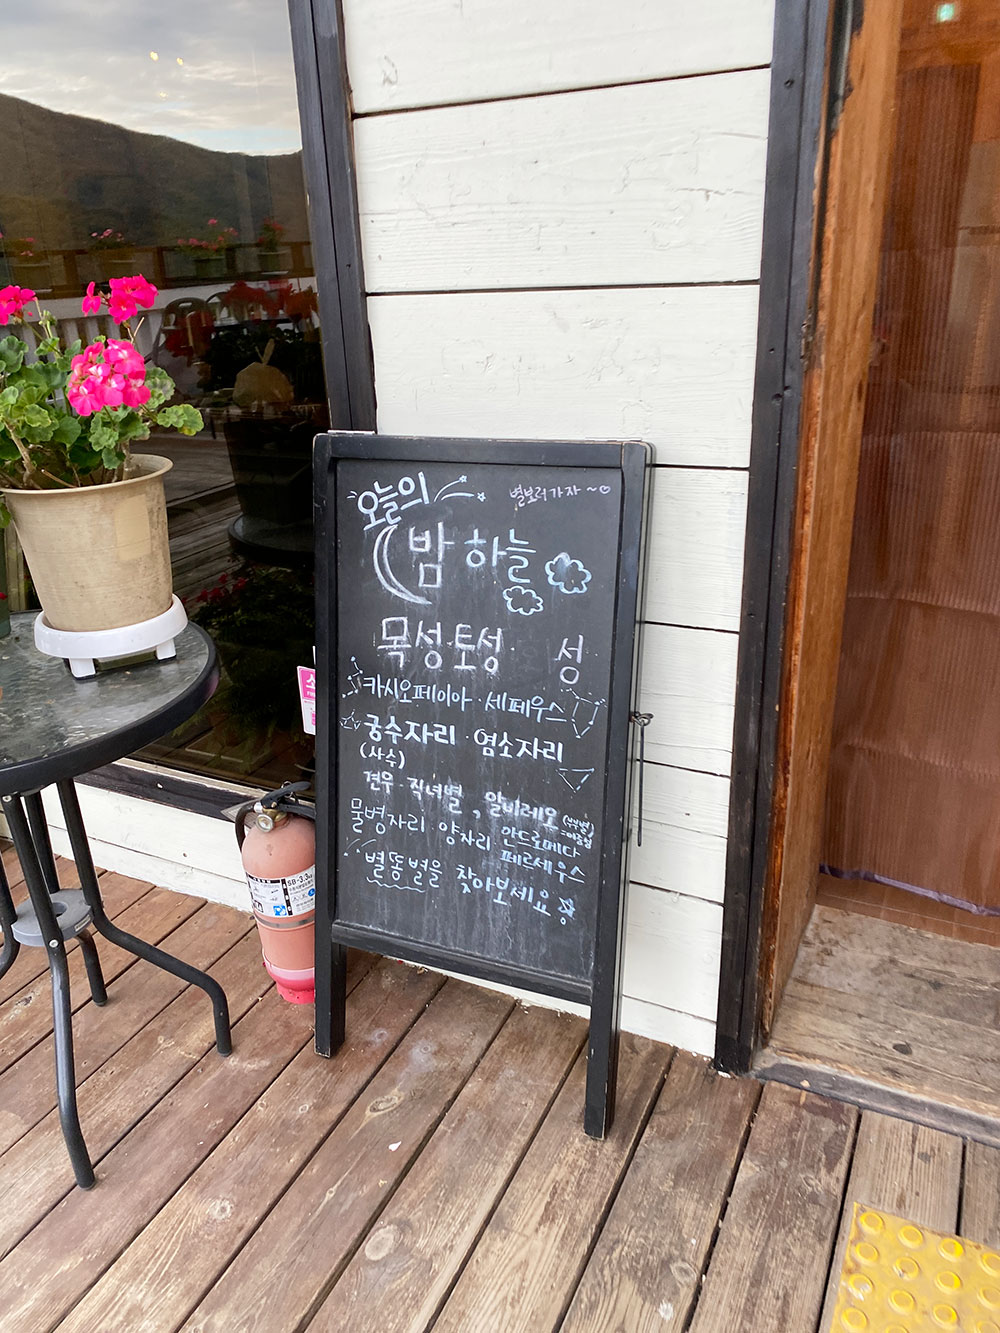 오늘의
별보러가자~♡
밤하늘
목성·토성· 성
카시오페이아·세페우스
궁수자리·염소자리
(사수)
견우·직녀별, 알비레오
물병자리·양자리 안드로메다
페르세우스
별똥별을 찾아보세요
SB-3.3kg